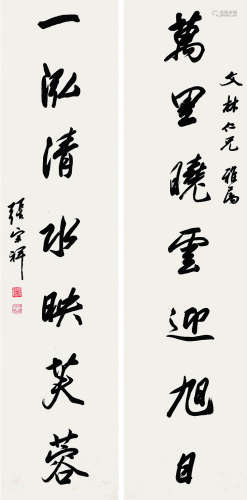 萬里曉雲迎旭日
文林仁兄雅屬
一泓清水映芙蓉
張宗祥